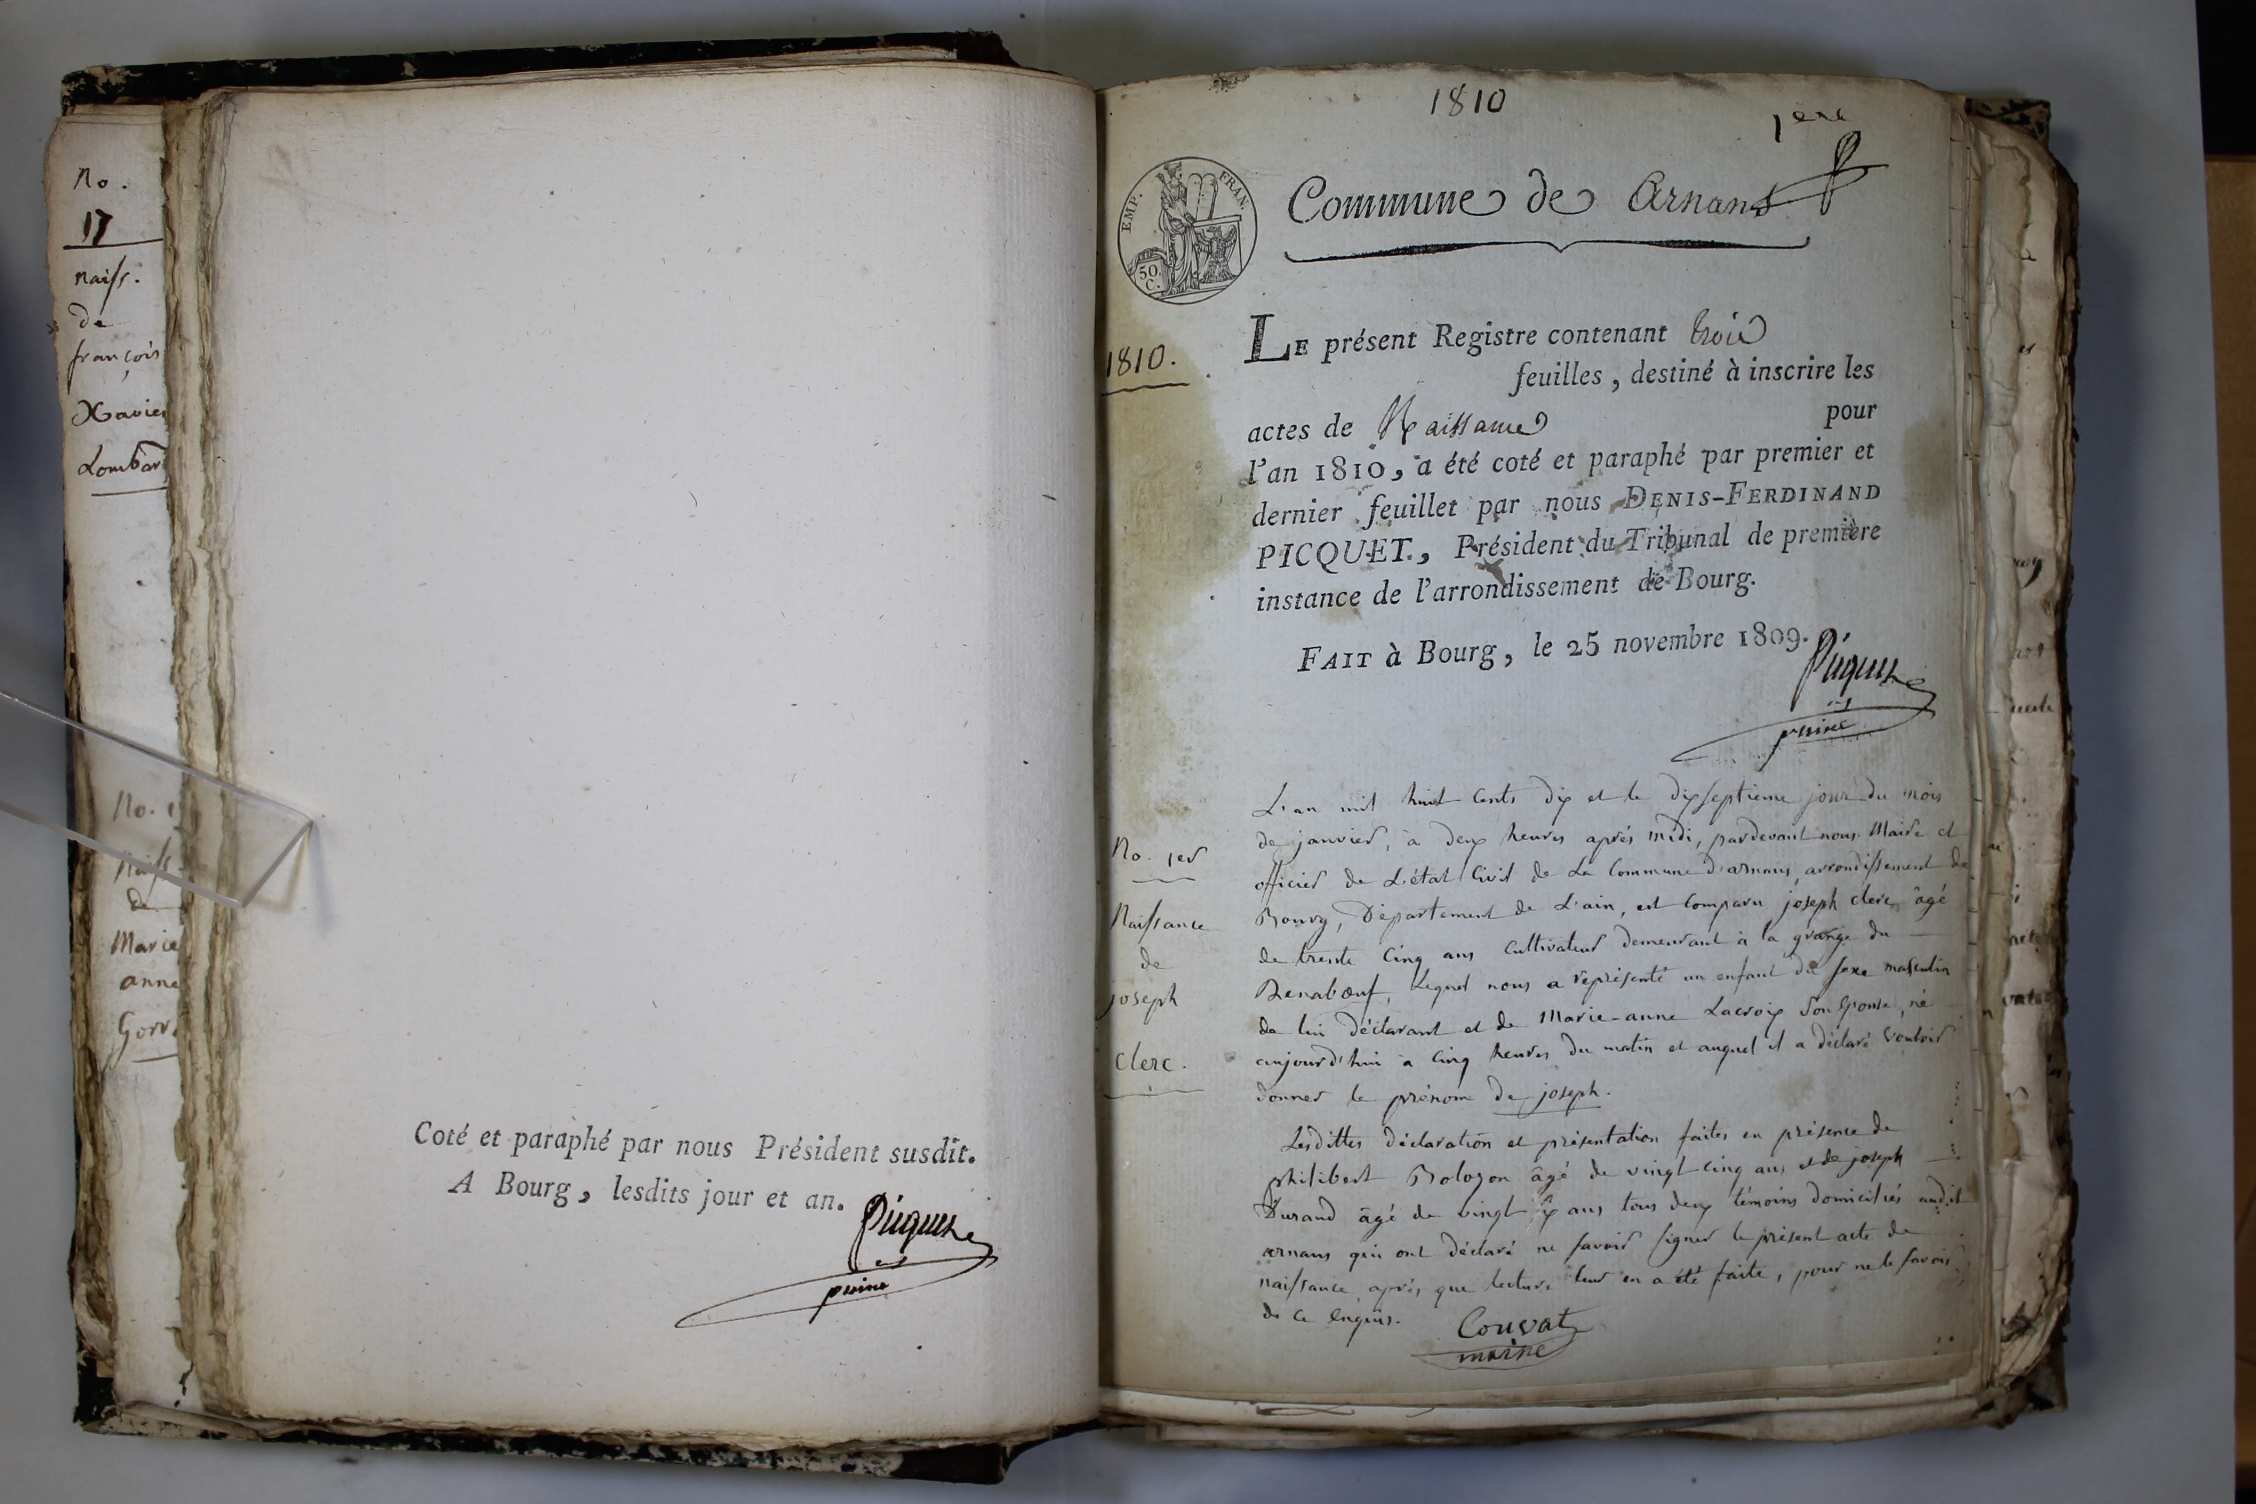 No.
17
naiss.
de
françois
Xavier
Lombar
No. 1
Naiss
de
Marie
anne
Gorr
Coté et paraphé par nous Président susdit.
A Bourg, lesdits jour et an.
Picquet
1810
1ere
EMP. FRAN.
50. C.
Commune de Arnans
1810.
LE présent Registre contenant trois
feuilles, destiné à inscrire les
actes de Naissance pour
l'an 1810, a été coté et paraphé par premier et
dernier feuillet par nous DENIS-FERDINAND
PICQUET, Président du Tribunal de première
instance de l'arrondissement de Bourg.
FAIT à Bourg, le 25 novembre 1809.
Picquet
No. 1er
Naissance
de
joseph
Clerc.
L'an mil huit Cents dix et le dixseptieme jour du mois
de janvier, à deux heures après midi, pardevant nous Maire et
officier de L'état Civil de La Commune d'arnans, arrondissement de
Bourg, Département de L'ain, est Comparu joseph clerc âgé
de trente Cinq ans Cultivateur demeurant à la grange du
Benabœuf, Lequel nous a représenté un enfant du sexe masculin
de lui Déclarant et de Marie-anne Lacroix son Epouse, né
aujourd'hui à Cinq heures du matin et auquel il a déclaré vouloir
donner le prénom de joseph.
Lesdittes déclaration et présentation faites en présence de
philibert Bologon âgé de vingt cinq ans et de joseph
Durand âgé de vingt ans tous deux témoins domiciliés audit
arnans qui ont déclaré ne savoir signer le présent acte de
naissance, après que lecture leur en a été faite, pour ne le savoir
de ce enquis.
Couvat
maire